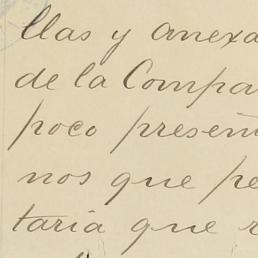 llas y anexa
de la Compa
poco presen
nos que pe
taria que r